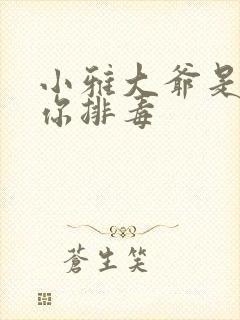 小雅大爷是
你排毒
蒼生笑